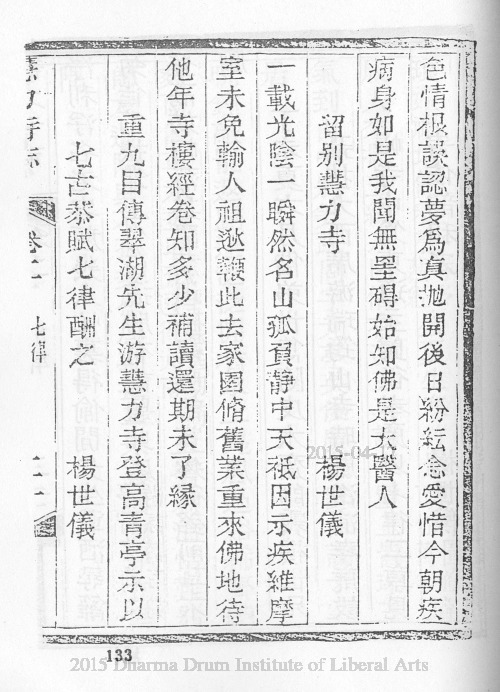 色情根誤認夢爲眞拋開後日紛紜念愛惜今朝疾
病身如是我聞無罣碍始知佛是大醫人
留別慧力寺 楊世儀
一載光陰一瞬然名山孤負静中天祗因示疾維摩
室未免輸人祖逖鞭此去家園脩舊業重來佛地待
他年寺樓經卷知多少補讀還期未了緣
重九目傳翠湖先生游慧力寺登高青亭示以
七古恭賦七律酬之 楊世儀
慧力寺志 卷二 七律
2015-04-
133
2015 Dharma Drum Institute of Liberal Arts